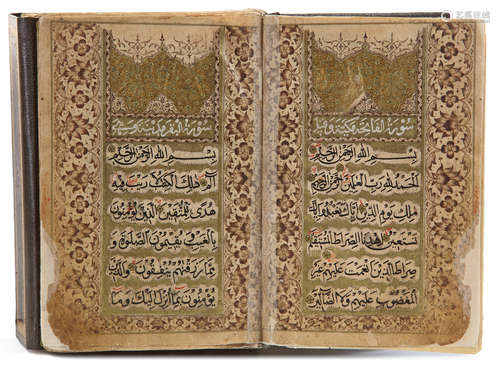 سورة الفاتحة مكية
بسم الله الرحمن الرحيم
الحمد لله رب العلمين الرحمن الرحيم
ملك يوم الدين اياك نعبد واياك
نستعين اهدنا الصراط المستقيم
صراط الذين انعمت عليهم غير
المغضوب عليهم ولا الضالين
سورة البقرة مدنية
بسم الله الرحمن الرحيم
الم ذلك الكتب لا ريب فيه
هدى للمتقين الذين يؤمنون
بالغيب ويقيمون الصلوة و
مما رزقنهم ينفقون والذين
يؤمنون بما انزل اليك وما